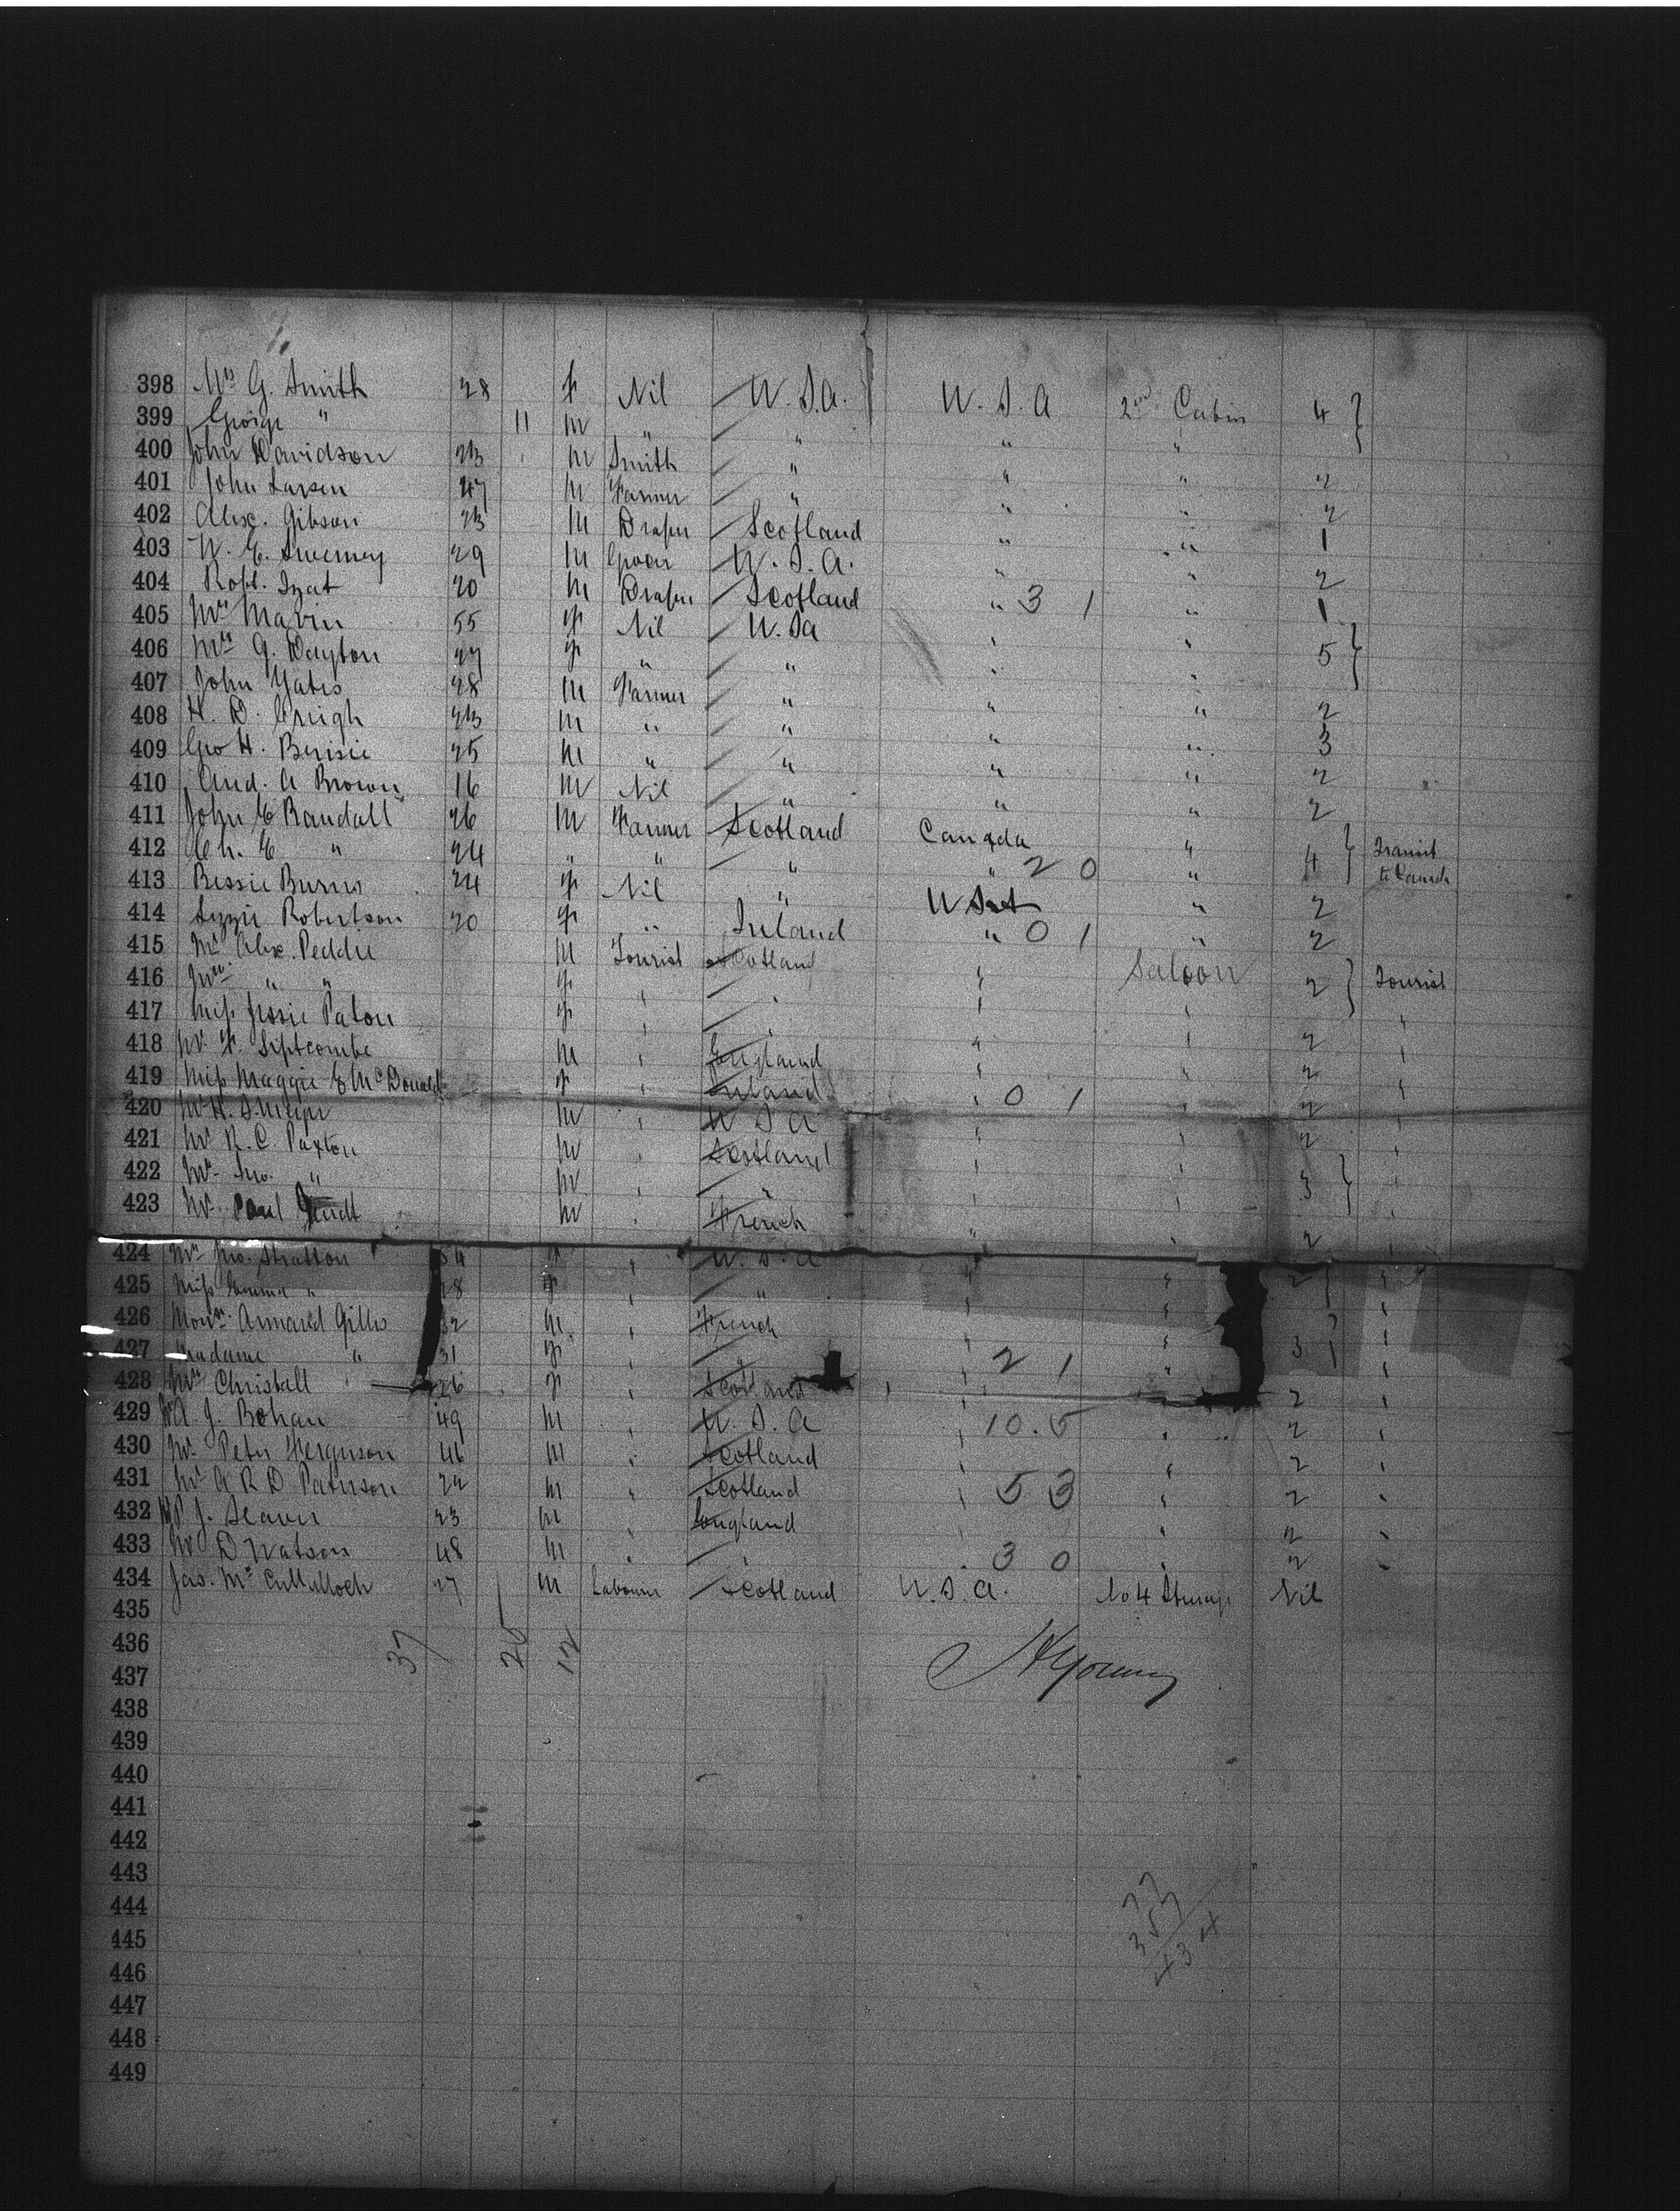 398 Mrs G. Smith 28 f Nil U.S.A. U.S.A 2nd Cabin 4
399 George " 11 m " " " "
400 John Davidson 23 m Smith " " " 2
401 John Larsen 47 m Farmer " " " 2
402 Alex. Gibson 23 m Draper Scotland " " 1
403 W. E. Sweeney 29 m Grocer U.S.A. " " 2
404 Robt. Izat 20 m Draper Scotland " 3 1 " 1
405 Mrs Marvin 55 f Nil U.Sa " "
406 Mrs G. Dayton 27 f " " " " 5
407 John Yates 28 m Farmer " " " 2
408 H. D. Creigh 23 m " " " " 3
409 Geo H. 25 m " " " " 2
410 And. A Brown 16 m Nil " " " 2
411 John E Randall 26 m Farmer Scotland Canada "
412 Ch. E " 24 " " " " 2 0 " 4 Transit to Canada
413 Bessie Burns 24 f Nil " U S A " 2
414 Lizzie Robertson 20 f " Ireland " 0 1 " 2
415 Mr Alex. Peddie m Tourist Scotland " Saloon
416 Mrs " " f " " " 2 Tourist
417 Miss Jessie Paton f " " " " 2 "
418 Mr F. m " England " " 2 "
419 Miss Maggie E McDonald f " Ireland " 0 1 " 2 "
420 Mr H. m " U S A " " 2 "
421 Mr R. C. Paxton m " Scotland " " "
422 Mr. Jno. " m " " " " 3 "
423 Mr. Paul m " French " " 2 "
424 Mr Jno. Stratton 54 " U.S.A " "
425 Miss Emma " 28 f " " " " 2 "
426 Monsr. Armand Gilles 32 m. " French " " "
427 Madame " 31 f " " " 2 1 " 3 "
428 Mrs Christall 26 f " Scotland " " 2 "
429 Mr A. J. Bohan 49 m " U.S.A " 10.5 " 2 "
430 Mr. Peter Ferguson 46 m " Scotland " " 2 "
431 Mr A R D Paterson 22 m " Scotland " 5 3 " 2 "
432 Mr P. J. Seaver 23 m " England " " 2 "
433 Mr D Watson 48 m " " " 3 0 " 2 "
434 Jas. McCullulloch 27 m Labourer Scotland U.S.A. No 4 Steerage Nil
435
436 37 26 12
437 Young
438
439
440
441
442
443
444 77
445 357
446 434
447
448
449